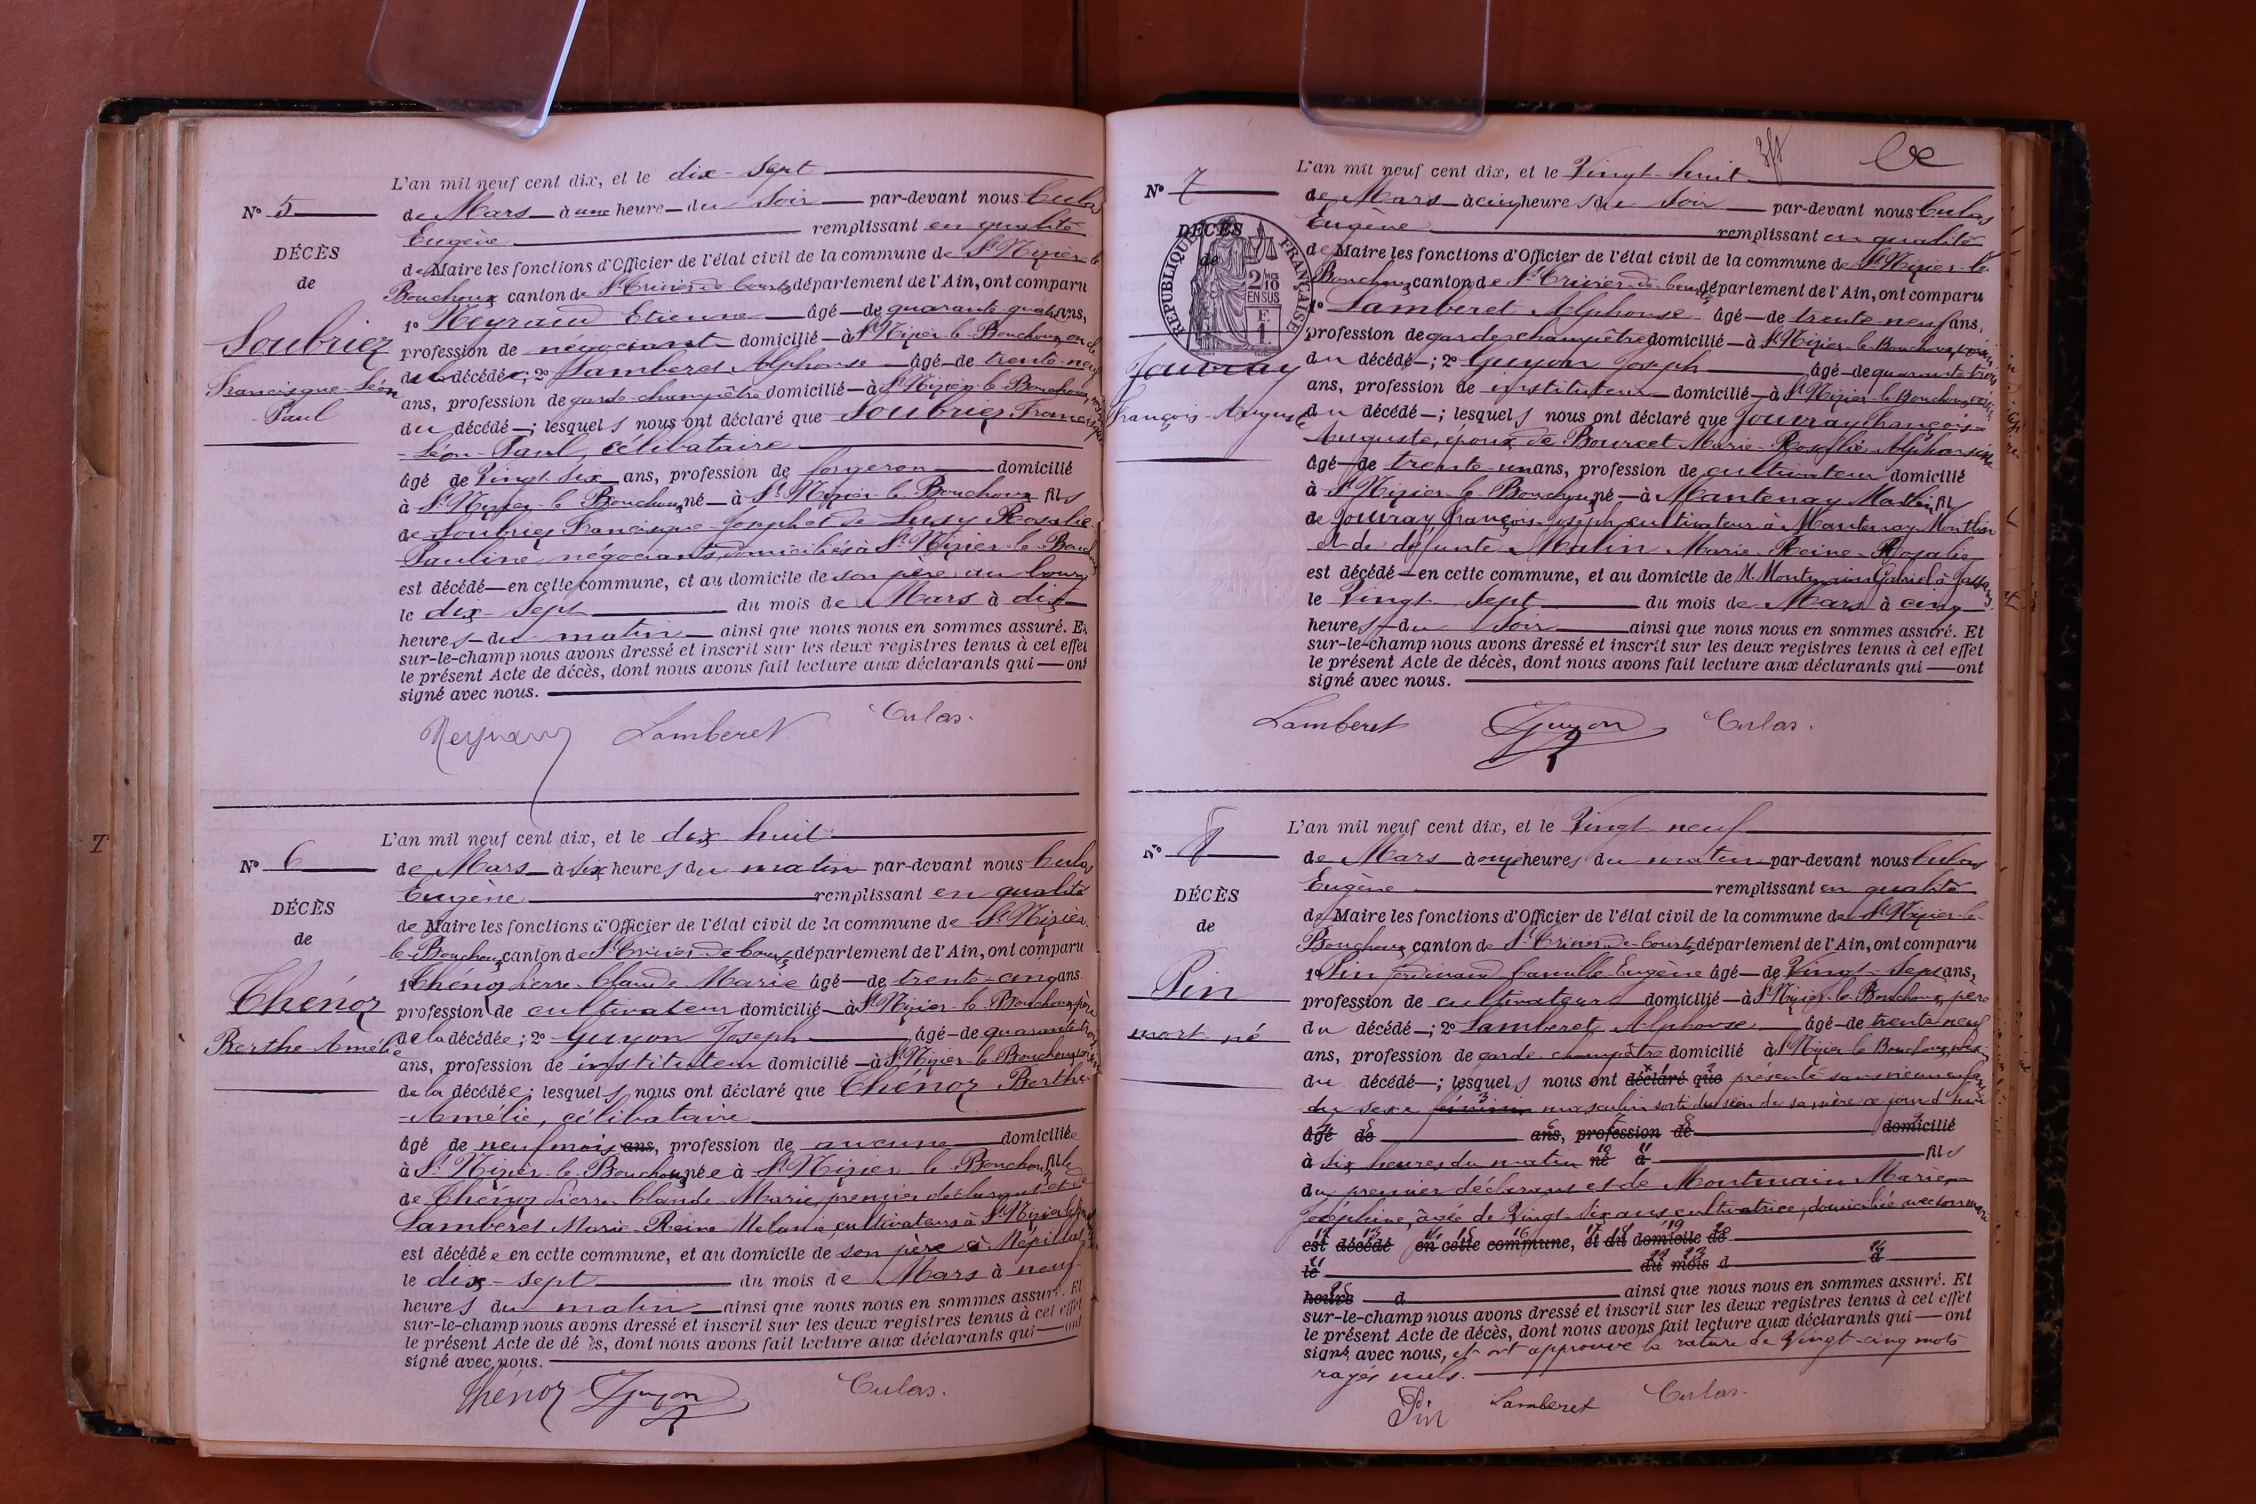 N° 5
DÉCÈS
de
Soubriez
Francisque-Léon
Paul
L'an mil neuf cent dix, et le dix-sept
de Mars à une heure du soir par-devant nous Culas
Eugène remplissant en qualité
de Maire les fonctions d'Officier de l'état civil de la commune de St Nizier-le
Bouchoux canton de St Trivier-de-Courtes département de l'Ain, ont comparu
1° Neyraud Etienne âgé de quarante quatre ans,
profession de négociant domicilié à St Nizier-le-Bouchoux
du décédé; 2° Lamberet Alphonse âgé de trente-neuf
ans, profession de garde-champêtre domicilié à St Nizier-le-Bouchoux, voisin
du décédé; lesquels nous ont déclaré que Soubriez Francisque
-Léon-Paul, célibataire
âgé de Vingt six ans, profession de forgeron domicilié
à St Nizier-le-Bouchoux né à St Nizier-le-Bouchoux fils
de Soubriez Francisque-Joseph et de Lusy Rosalie
Pauline négociants, domiciliés à St Nizier-le-Bouchoux
est décédé en cette commune, et au domicile de son père au bourg
le dix-sept du mois de Mars à dix
heures du matin ainsi que nous nous en sommes assuré. Et
sur-le-champ nous avons dressé et inscrit sur les deux registres tenus à cet effet
le présent Acte de décès, dont nous avons fait lecture aux déclarants qui ont
signé avec nous.
Neyraud Lamberet Culas.
N° 6
DÉCÈS
de
Chénoz
Berthe Amélie
L'an mil neuf cent dix, et le dix huit
de Mars à six heures du matin par-devant nous Culas
Eugène remplissant en qualité
de Maire les fonctions d'Officier de l'état civil de la commune de St Nizier
le-Bouchoux canton de St Trivier-de-Courtes département de l'Ain, ont comparu
1° Chénoz Pierre Claude Marie âgé de trente-cinq ans
profession de cultivateur domicilié à St Nizier-le-Bouchoux père
de la décédée; 2° Guyon Joseph âgé de quarante trois
ans, profession de instituteur domicilié à St Nizier-le-Bouchoux voisin
de la décédée; lesquels nous ont déclaré que Chénoz Berthe
-Amélie, célibataire
âgé de neuf mois ans, profession de aucune domiciliée
à St Nizier-le-Bouchoux née à St Nizier-le-Bouchoux fille
de Chénoz Pierre Claude-Marie, premier déclarant et de
Lamberet Marie-Reine Mélanie, cultivateurs à St Nizier-le-Bouchoux
est décédée en cette commune, et au domicile de son père à Népillat
le dix-sept du mois de Mars à neuf
heures du matin ainsi que nous nous en sommes assuré. Et
sur-le-champ nous avons dressé et inscrit sur les deux registres tenus à cet effet
le présent Acte de décès, dont nous avons fait lecture aux déclarants qui ont
signé avec nous.
Chénoz Guyon Culas.
N° 7
DÉCÈS
de
RÉPUBLIQUE FRANÇAISE
2/10 EN SUS
Jouvray
François-Auguste
L'an mil neuf cent dix, et le Vingt-huit
de Mars à cinq heures du soir par-devant nous Culas
Eugène remplissant en qualité
de Maire les fonctions d'Officier de l'état civil de la commune de St Nizier-le-
Bouchoux canton de St Trivier-de-Courtes département de l'Ain, ont comparu
1° Lamberet Alphonse âgé de trente-neuf ans,
profession de garde champêtre domicilié à St Nizier-le-Bouchoux, voisin
du décédé; 2° Guyon Joseph âgé de quarante trois
ans, profession de instituteur domicilié à St Nizier-le-Bouchoux voisin
du décédé; lesquels nous ont déclaré que Jouvray François-
Auguste, époux de Bourcet Marie-Rosalie-Alphonsine
âgé de trente-un ans, profession de cultivateur domicilié
à St Nizier-le-Bouchoux né à Mantenay Montlin fils
de Jouvray François-Joseph, cultivateur à Mantenay-Montlin
et de défunte Malin Marie-Reine-Rosalie
est décédé en cette commune, et au domicile de M. Montmain Gabriel à
le Vingt-sept du mois de Mars à cinq
heures du soir ainsi que nous nous en sommes assuré. Et
sur-le-champ nous avons dressé et inscrit sur les deux registres tenus à cet effet
le présent Acte de décès, dont nous avons fait lecture aux déclarants qui ont
signé avec nous.
Lamberet Guyon Culas.
N° 8
DÉCÈS
de
Pin
mort-né
L'an mil neuf cent dix, et le Vingt-neuf
de Mars à onze heures du matin par-devant nous Culas
Eugène remplissant en qualité
de Maire les fonctions d'Officier de l'état civil de la commune de St Nizier-le-
Bouchoux canton de St Trivier-de-Courtes département de l'Ain, ont comparu
1° Pin Ferdinand Camille Eugène âgé de Vingt-sept ans,
profession de cultivateur domicilié à St Nizier-le-Bouchoux, père
du décédé; 2° Lamberet Alphonse âgé de trente-neuf
ans, profession de garde-champêtre domicilié à St Nizier-le-Bouchoux, voisin
du décédé; lesquels nous ont déclaré que présenté sans vie un enfant
du sexe féminin masculin sorti du sein de sa mère ce jourd'hui
âgé de ans, profession de domicilié
à six heures du matin né à fils
du premier déclarant et de Montmain Marie
Joséphine, âgée de Vingt-six ans cultivatrice, domiciliée avec son mari
est décédé en cette commune, et du domicile de
le du mois d à
heures d ainsi que nous nous en sommes assuré. Et
sur-le-champ nous avons dressé et inscrit sur les deux registres tenus à cet effet
le présent Acte de décès, dont nous avons fait lecture aux déclarants qui ont
signé avec nous, et ont approuvé la rature de Vingt-cinq mots
rayés nuls.
Pin Lamberet Culas.